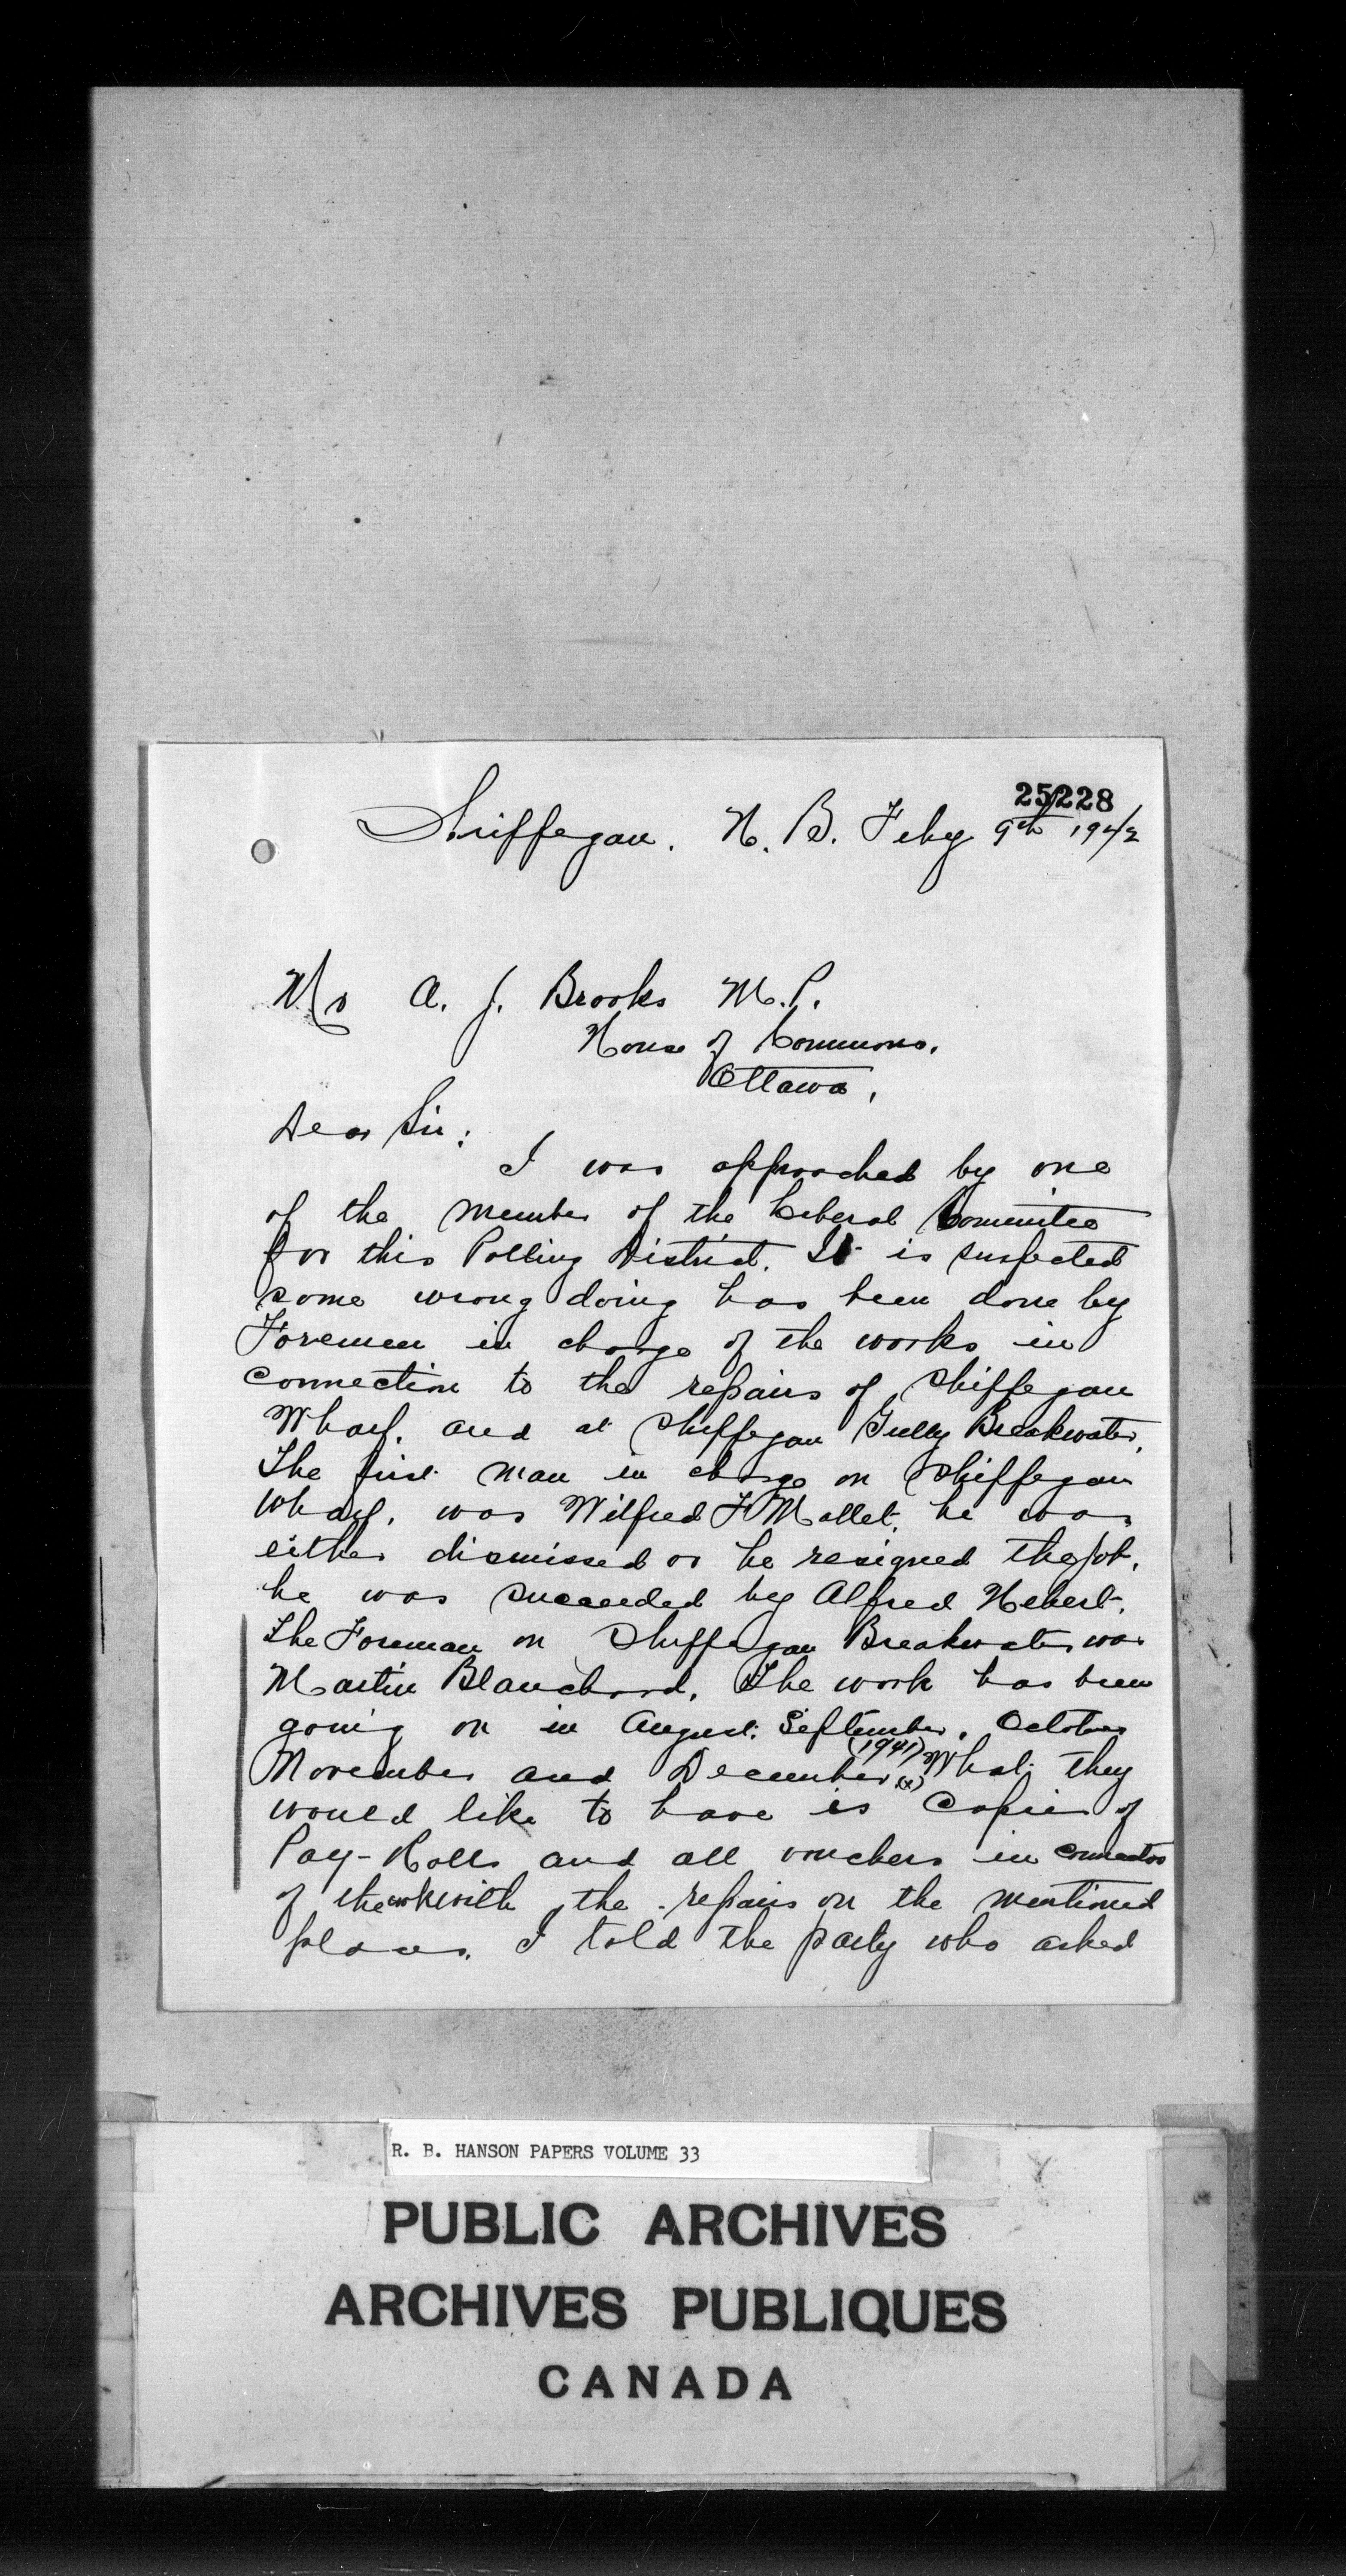 25228
Shippegan. N. B. Feby 9th 1942
Mr A. J. Brooks M.P.
House of Commons.
Ottawa.
Dear Sir:
I was approached by one
of the member of the Liberal Committee
for this Polling District. It is suspected
some wrong doing has been done by
Foremen in charge of the works in
connection to the repairs of Shippegan
Wharf. and at Shippegan Gully Breakwater.
The first man in charge on Shippegan
Wharf. was Wilfred F Mallet. he was
either dismissed or he resigned the job.
he was succeeded by Alfred Hebert.
The Foreman on Shippegan Breakwater was
Martin Blanchard. The work has been
going on in August. September. October
November and December (1941) (x) What they
would like to have is Copies of
Pay-Rolls and all vouchers in connection
of the wk with the repairs on the mentioned
places. I told the party who asked
R. B. HANSON PAPERS VOLUME 33
PUBLIC ARCHIVES
ARCHIVES PUBLIQUES
CANADA